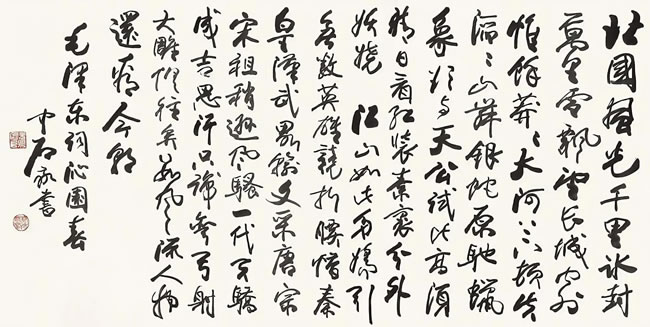 北國風光千里冰封
萬里雪飄望長城內外
惟餘莽〻大河上下頓失
滔〻山舞銀蛇原馳蠟
象欲与天公試比高須
晴日看紅裝素裹分外
妖嬈 江山如此多嬌引
無數英雄競折腰惜秦
皇漢武略輸文采唐宗
宋祖稍遜風騷一代天驕
成吉思汗只識彎弓射
大雕俱往矣數風流人物
還看今朝
毛澤東詞沁園春
中石敬書